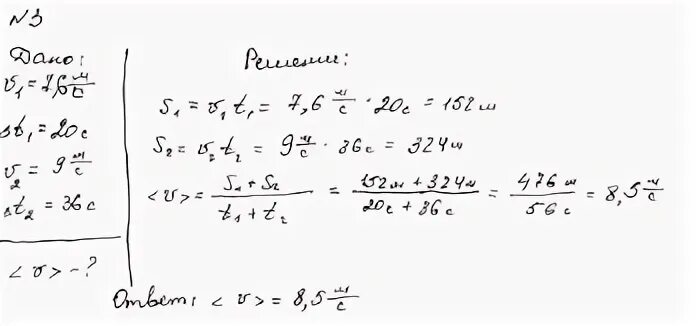 N3
Дано:
v₁ = 7,6 м/с
Δt₁ = 20с
v₂ = 9 м/с
Δt₂ = 36 с
<v> - ?
Решение:
S₁ = v₁t₁ = 7,6 м/с · 20с = 152 м
S₂ = v₂t₂ = 9 м/с · 36 с = 324 м
<v> = (S₁ + S₂)/(t₁ + t₂) = (152м + 324м)/(20с + 36с) = 476 м/56 с = 8,5 м/с
Ответ: <v> = 8,5 м/с